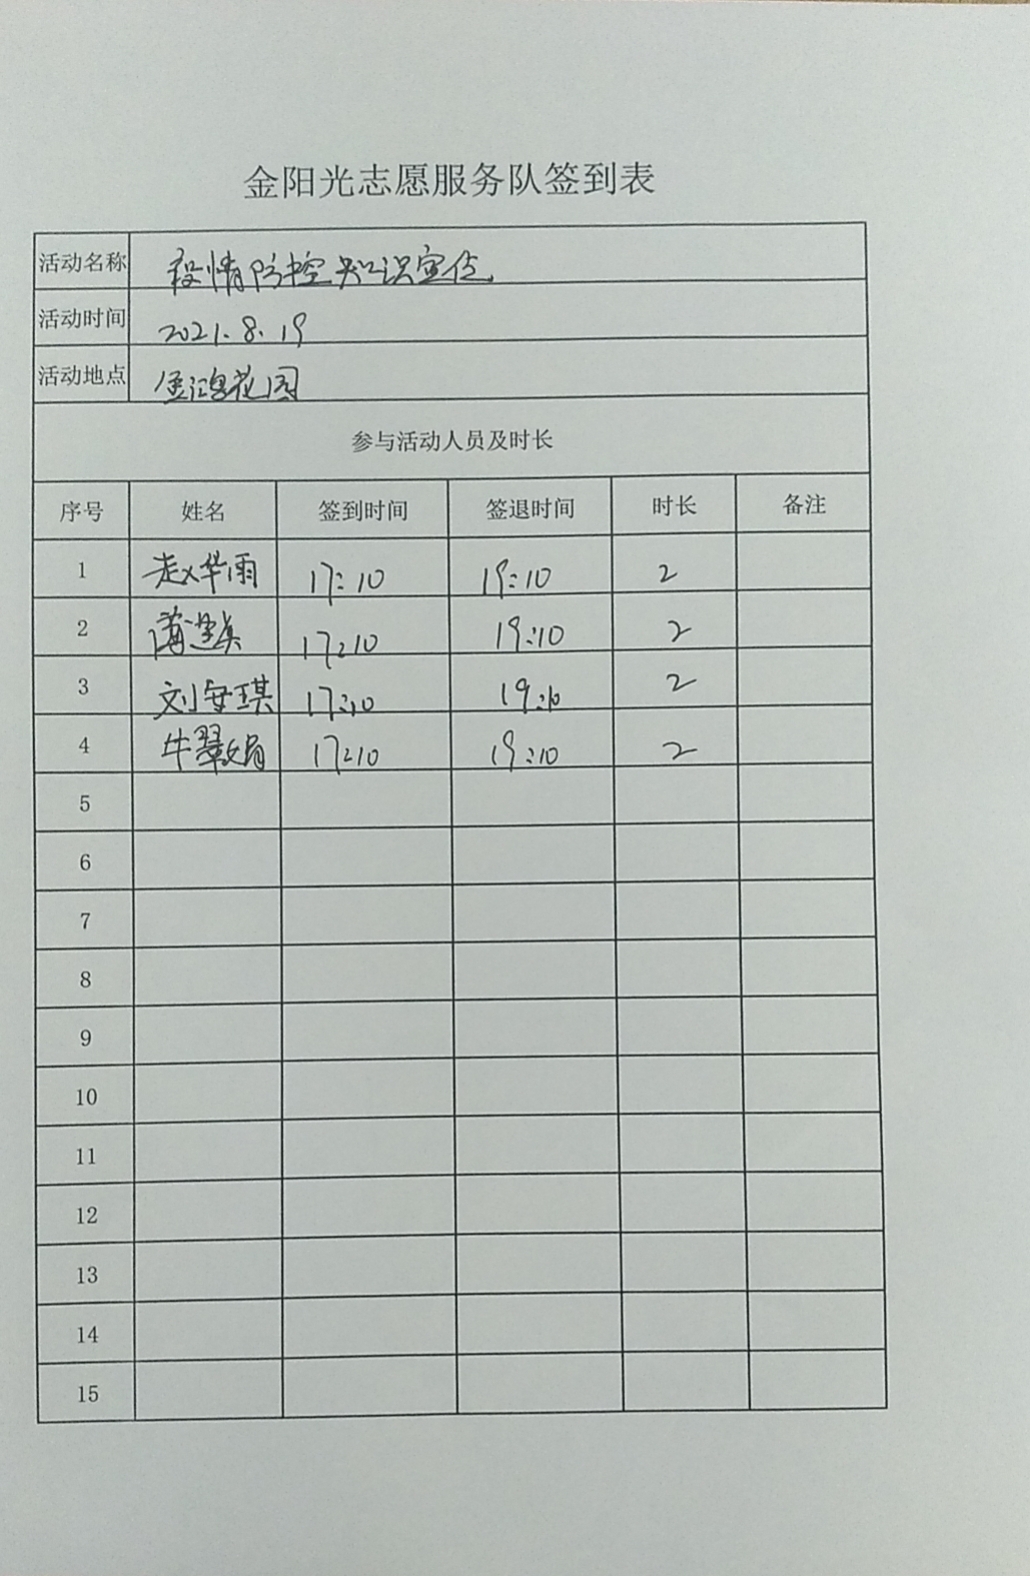 金阳光志愿服务队签到表
活动名称 疫情防控知识宣传
活动时间 2021.8.19
活动地点 金鸿花园
参与活动人员及时长
序号 姓名 签到时间 签退时间 时长 备注
1 赵华雨 17:10 19:10 2
2 17:10 19:10 2
3 刘安琪 17:10 19:10 2
4 牛翠娟 17:10 19:10 2
5
6
7
8
9
10
11
12
13
14
15